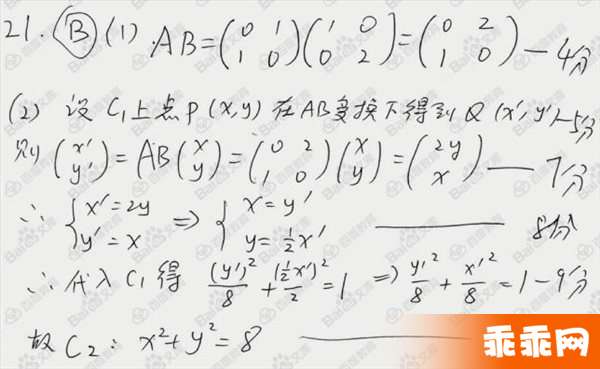 21. Ⓑ (1) AB = (0 1; 1 0)(1 0; 0 2) = (0 2; 1 0) — 4分
(2) 设C₁上点P(x,y)在AB变换下得到Q(x′,y′)—5分
则 (x′; y′) = AB(x; y) = (0 2; 1 0)(x; y) = (2y; x) —— 7分
∴ {x′=2y y′=x ⇒ {x=y′ y=½x′ —— 8分
∴ 代入C₁得 (y′)²/8 + (½x′)²/2 = 1 ⇒ y′²/8 + x′²/8 = 1 —9分
故C₂: x²+y²=8 ——
乖乖网